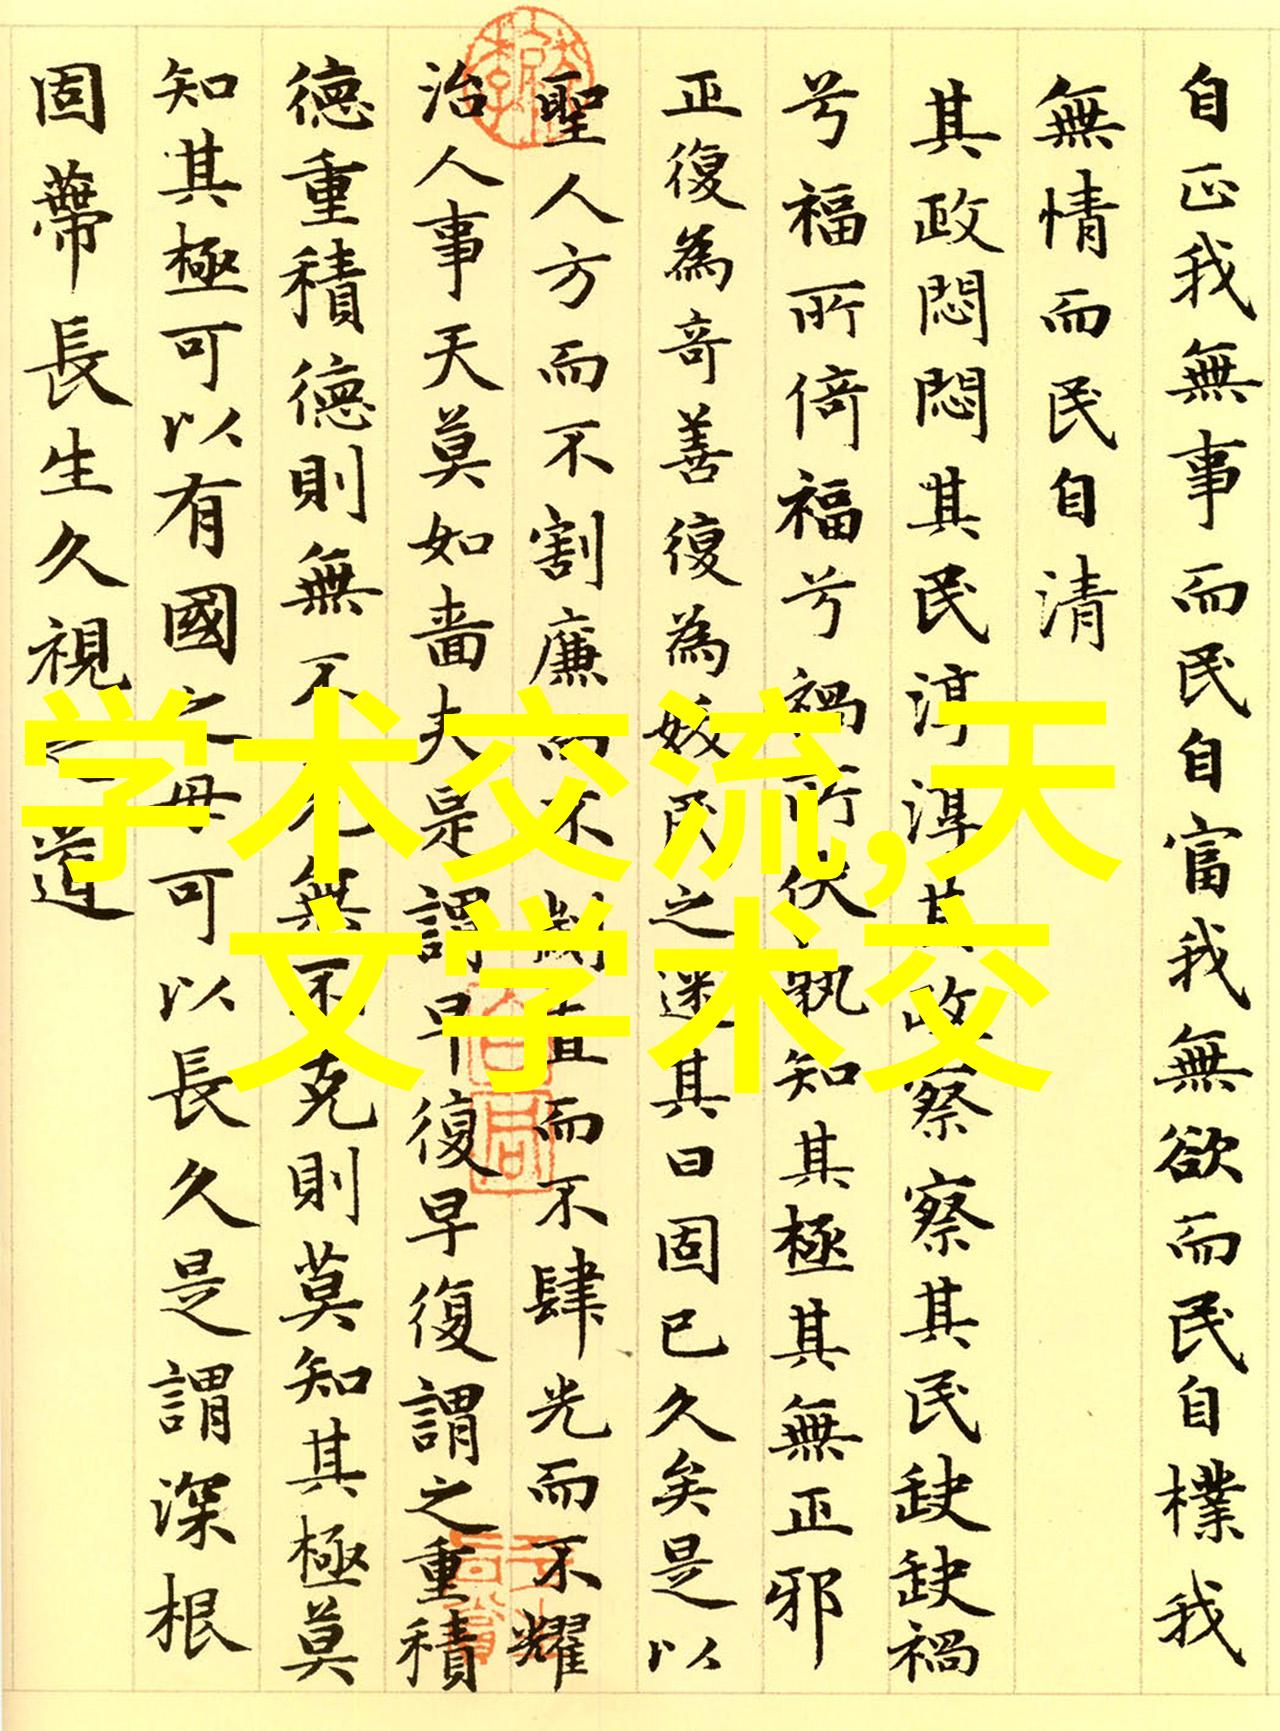 自正我無事而民自富我無欲而民自樸我
無情而民自清
其政悶悶其民淳淳其政察察其民缺缺禍
兮福所倚福兮禍所伏孰知其極其無正邪
正復為奇善復為妖民之迷其日固已久矣是以
聖人方而不割廉而不劌直而不肆光而不耀
治人事天莫如嗇夫是謂早復早復謂之重積
德重積德則無不克無不克則莫知其極莫
知其極可以有國之母可以長久是謂深根
固蔕長生久視之道
学术交流,天
文学术交